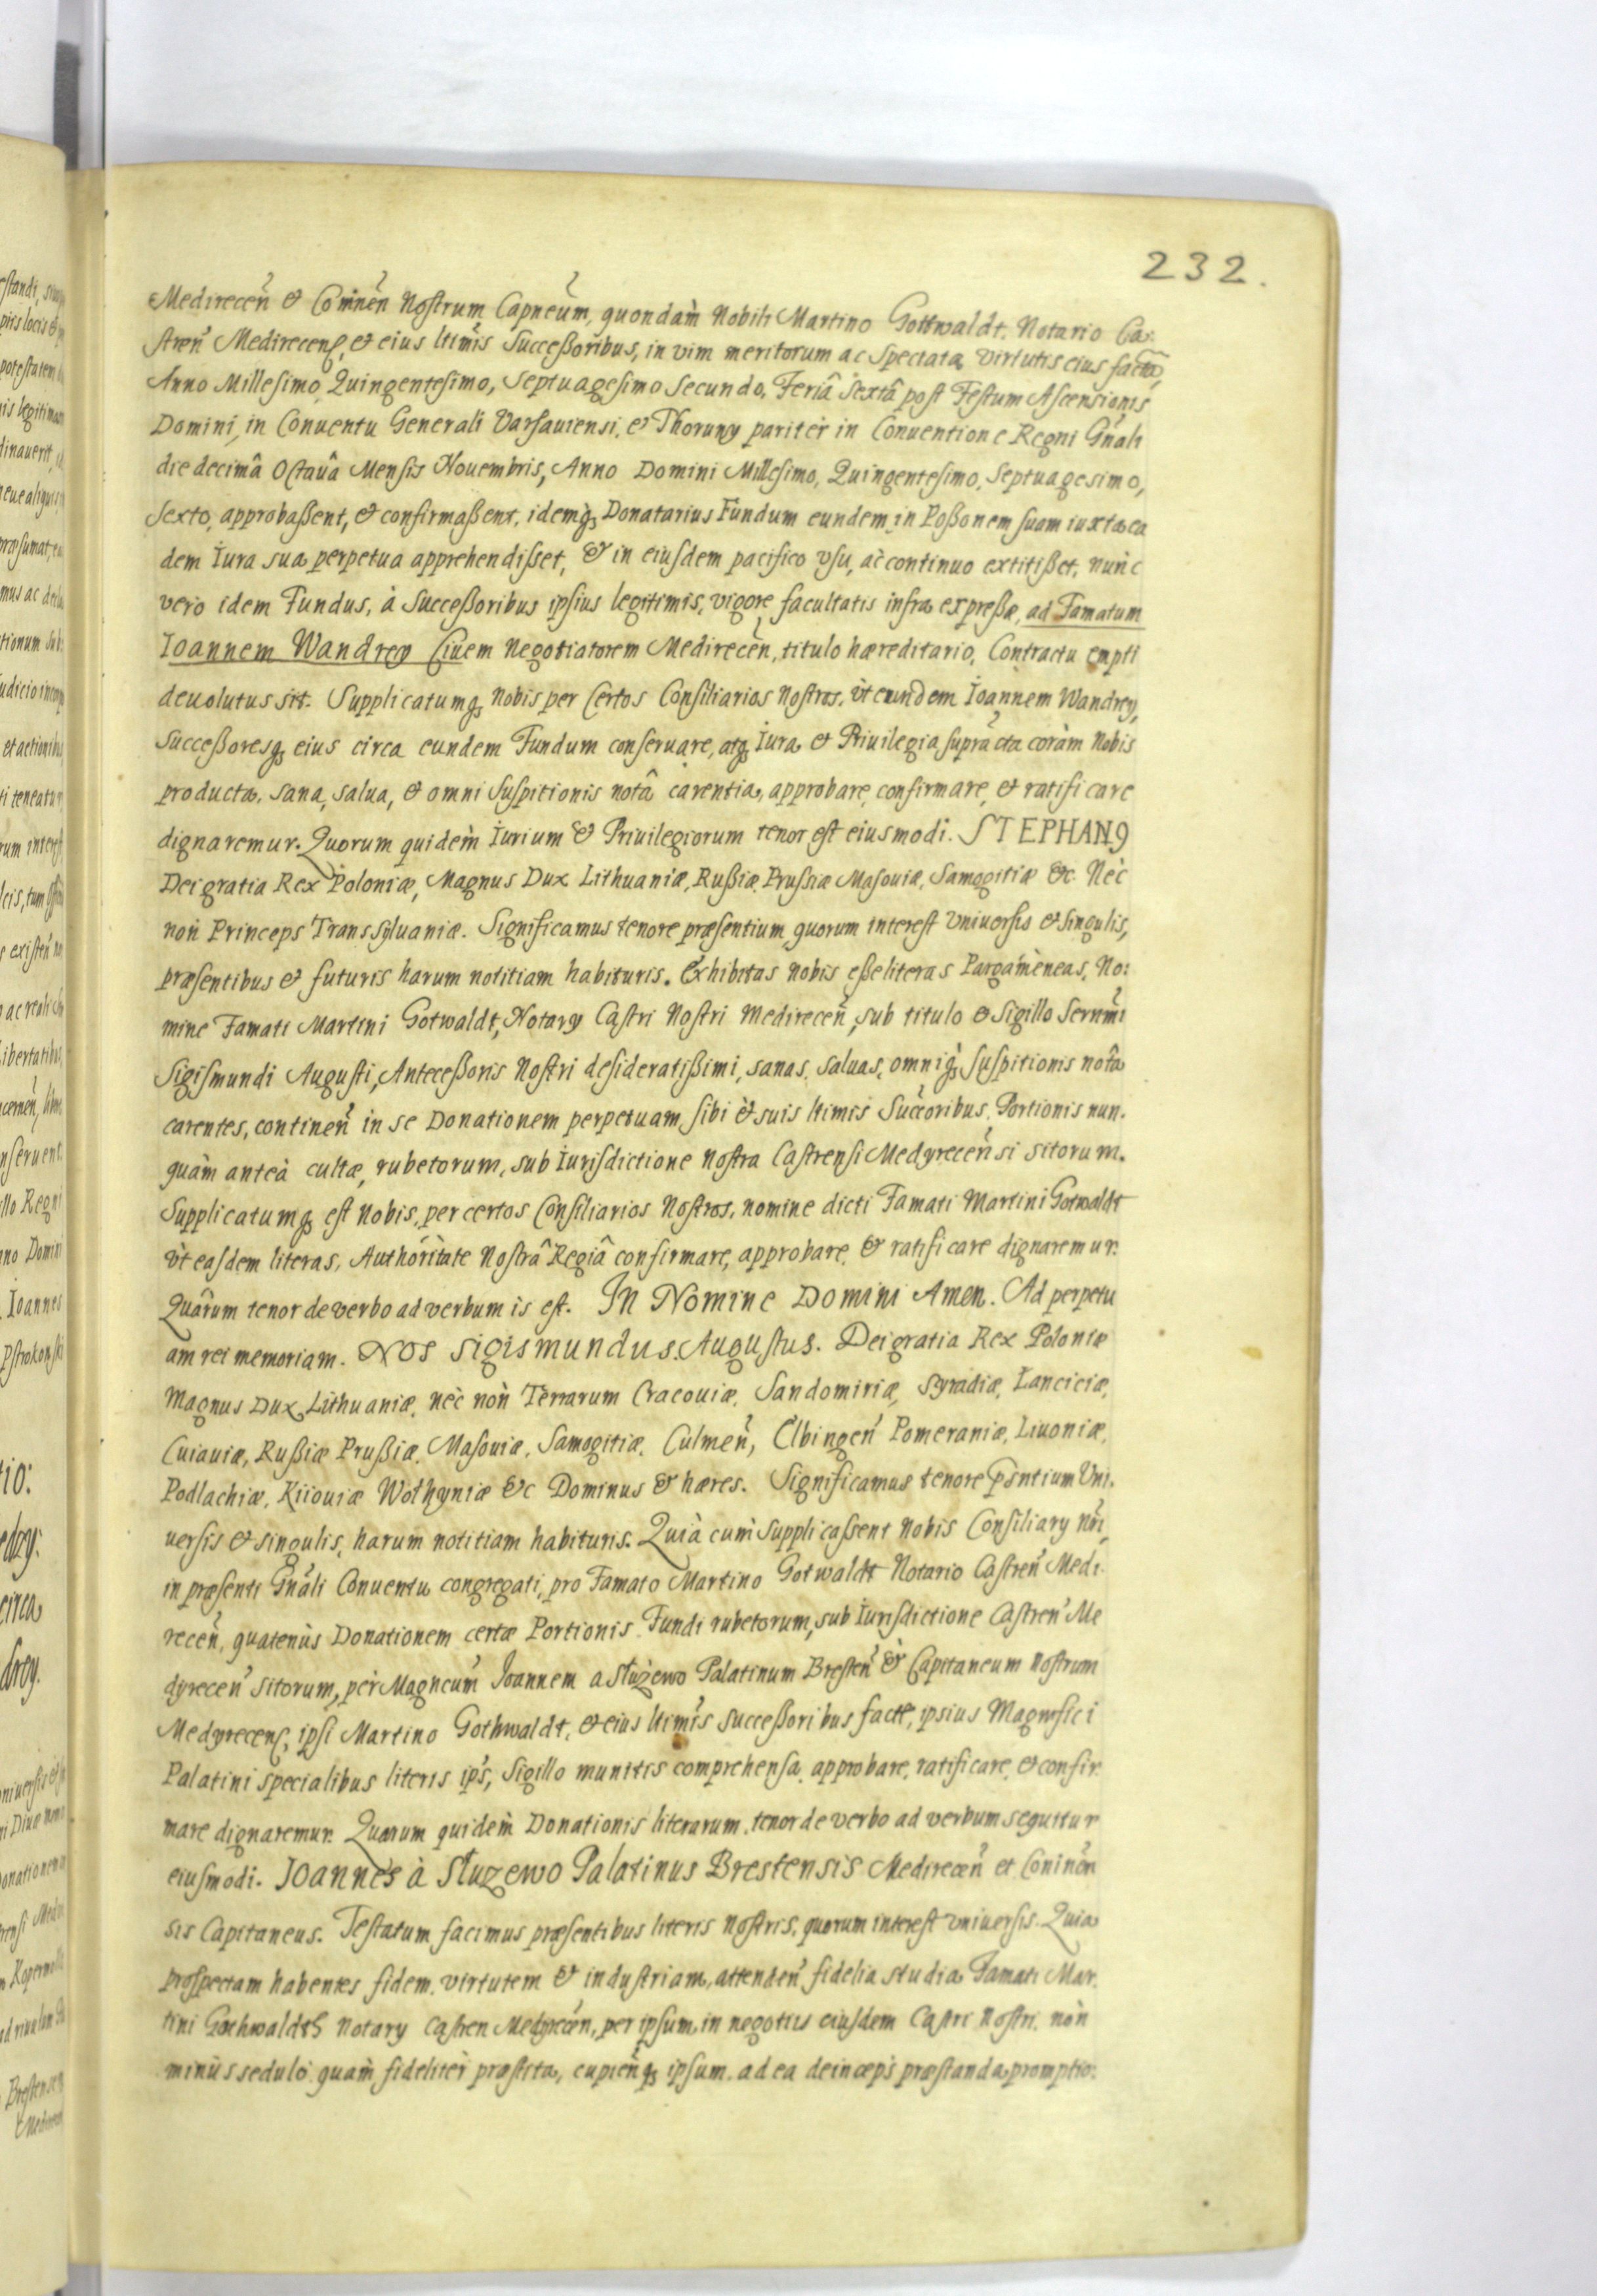 232.
Medirecen̄ & Coninen̄ Nostrum Capneum̄, quondam̀ Nobili Martino Gottwaldt, Notario Ca:
stren̄ Medirecens, et eius ltimis Succeßoribus, in vim meritorum ac Spectata virtutis eius facta,
Anno Millesimo Quingentesimo, Septuagesimo Secundo, Feriâ Sextâ post Festum Ascensionis
Domini, in Conuentu Generali Varsauiensi, & Thoruny pariter in Conuentione Regni Gn̄ali
die decimâ Octauâ Mensis Nouembris, Anno Domini Millesimo, Quingentesimo, Septuagesimo,
Sexto, approbaßent, & confirmaßent, idemq̨ Donatarius Fundum eundem in Poßonem suam iuxta ea
dem Iura sua perpetua apprehendißet, & in eiusdem pacifico vsu, ac̀ continuo extitißet, nunc
vero idem Fundus, à Succeßoribus ipsius legitimis, vigore facultatis infra expreßæ, ad Famatum
Ioannem Wandrey Ciuem Negotiatorem Medirecen̄, titulo hæreditario, Contractu empti
deuolutus sit. Supplicatumq̨ Nobis per Certos Consiliarios Nostros, ùt eundem Ioannem Wandrey,
Succeßoresq̨ eius circa eundem Fundum conseruare, atq̨ Iura & Priuilegia supràcta coràm Nobis
producta, sana, salua, & omni Suspitionis notâ carentia, approbare, confirmare, & ratificare
dignaremur. Quorum quidem̀ Iurium & Priuilegiorum tenor est eiusmodi. STEPHAN9
Dei gratia Rex Poloniæ, Magnus Dux Lithuaniæ, Rußiæ, Prussiæ Masouiæ, Samogitiæ &c. Nèc
noǹ Princeps Transsyluaniæ. Significamus tenore præsentium, quorum interest vniuersis & singulis,
præsentibus & futuris harum notitiam habituris. Exhibitas nobis eße literas Pargamèneas, No:
mine Famati Martini Gotwaldt, Notary Castri Nostri Medirecen̄, sub titulo & Sigillo Serenmi
Sigismundi Augusti, Anteceßoris Nostri desideratißimi, sanas, saluas, omniq̨ Suspitionis notâ
carentes, continen̄ in se Donationem perpetuam, sibi & suis ltimis Succoribus, Portionis nun.
quàm anteà cultæ, rubetorum, sub Iurisdictione nostra Castrensi Medyrecen̄si sitorum.
Supplicatumq̨ est Nobis, per certos Consiliarios Nostros, nomine dicti Famati Martini Gotwaldt
ùt easdem literas, Authoritate Nostrâ Regiâ confirmare, approbare, & ratificare dignaremur.
Quârum tenor de verbo ad verbum is est. In Nomine Domini Amen. Ad perpetu
am rei memoriam. NOS Sigismundus Augustus. Dei gratia Rex Poloniæ
Magnus Dux Lithuaniæ, nèc noǹ Terrarum Cracouiæ, Sandomiriæ, Syradiæ, Lanciciæ,
Cuiauiæ, Rußiæ Prußiæ, Masouiæ, Samogitiæ, Culmen̄, Elbingen̄ Pomeraniæ, Liuoniæ,
Podlachiæ, Kiiouiæ Wolhyniæ &c Dominus & hæres. Significamus tenore p̄sntium Uni.
uersis & singulis, harum notitiam habituris. Quià cum̀ supplicassent nobis Consiliary nr̄i,
in præsenti Gn̄ali Conuentu congregati, pro Famato Martino Gotwaldt Notario Castren̄ Medi.
recen̄, quatenùs Donationem certæ Portionis Fundi rubetorum, sub Iurisdictione Castren̄ Me
dyrecen̄ sitorum, pèr Magncum̄ Joannem a Służewo Palatinum Bresten̄ & Capitaneum Nostrum
Medyrecens, ipsi Martino Gothwaldt, & eius ltimis Successoribus factę, ipsius Magnifici
Palatini specialibus literis ip̄s, Sigillo munitis comprehensa, approbare, ratificare, & confir.
mare dignaremur. Quarum quidem̀ Donationis literarum, tenor de verbo ad verbum sequitur
eiusmodi. Joannes à Służewo Palatinus Brestensis Medirecen̄ et Coninen̄
sis Capitaneus. Testatum facimus præsentibus literis nostris, quorum interest vniuersis. Quia
prospectam habentes fidem, virtutem & industriam, attenden̄ fidelia studia Famati Mar.
tini Gothwaldth Notary Castren Medyrecen̄, per ipsum, in negotiis eiusdem Castri Nostri, nòn
minùs sedulò quam̀ fidelitèr præstita, cupien̄q̨ ipsum, ad ea deinceps̀ præstanda, promptio: